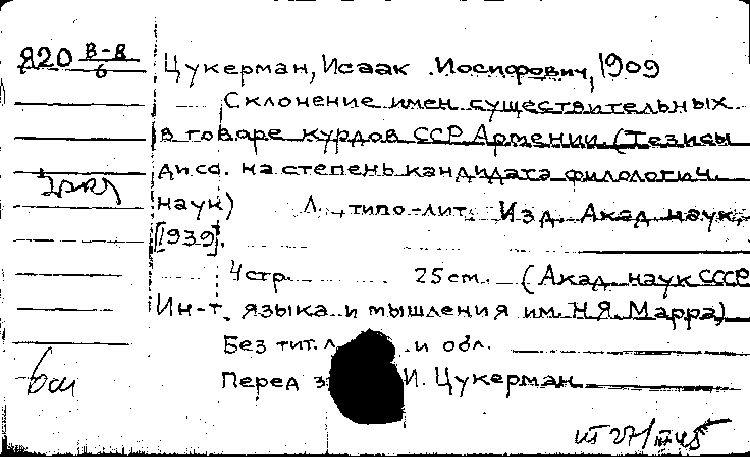 Я20 В-8/6
Цукерман, Исаак Иосифович, 1909
Склонение имен существительных
в говоре курдов ССР Армении (Тезисы
дисс. на степень кандидата филологич.
наук) Л., типо-лит. Изд. Акад. наук,
[1939].
4 стр. 25 см. (Акад. наук СССР
Ин-т. языка и мышления им. Н.Я. Марра)
Без тит. л. и обл.
Перед з И. Цукерман